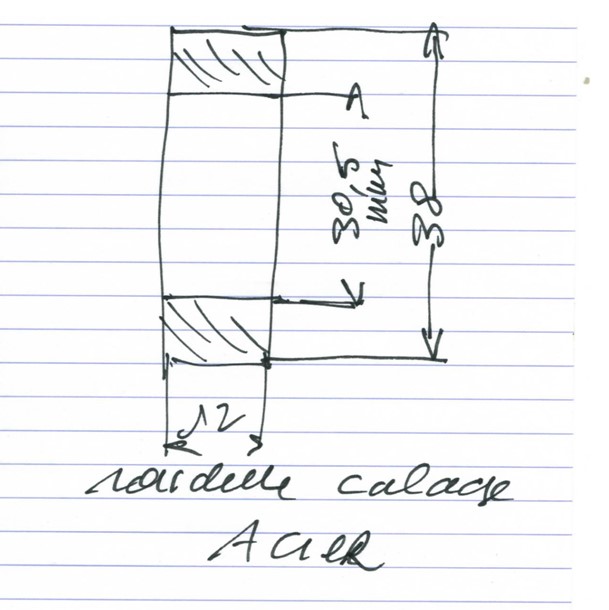 30,5
mini
38
12
rondelle calage
ACIER